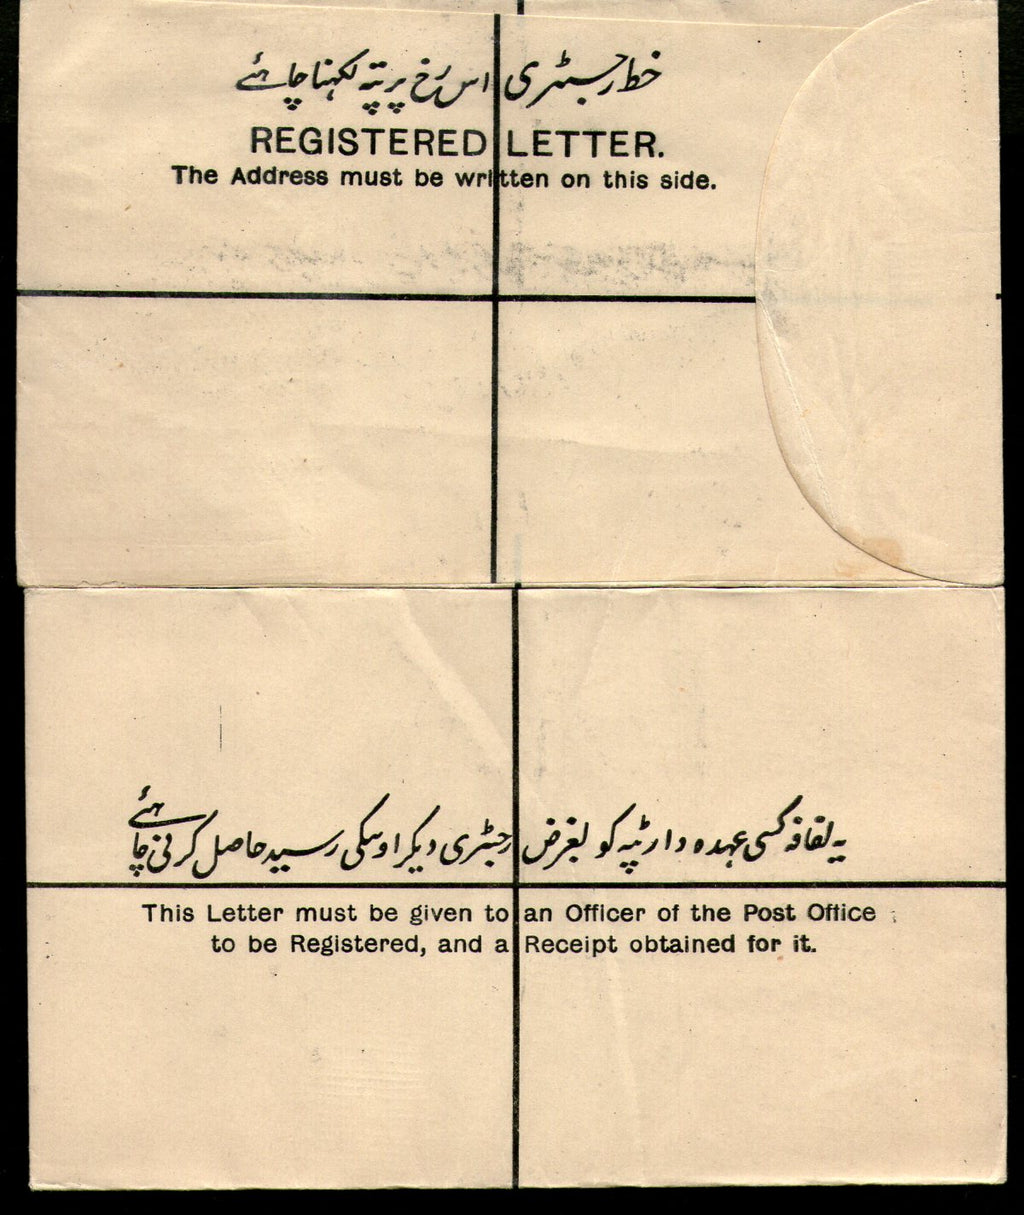 خط رجسٹری اس رخ پر پتہ لکہنا چاہئے
REGISTERED LETTER.
The Address must be written on this side.
یہ لفافہ کسی عہدہ دار ٹپہ کو بغرض رجسٹری دیکر اوسکی رسید حاصل کرنی چاہئے
This Letter must be given to an Officer of the Post Office
to be Registered, and a Receipt obtained for it.